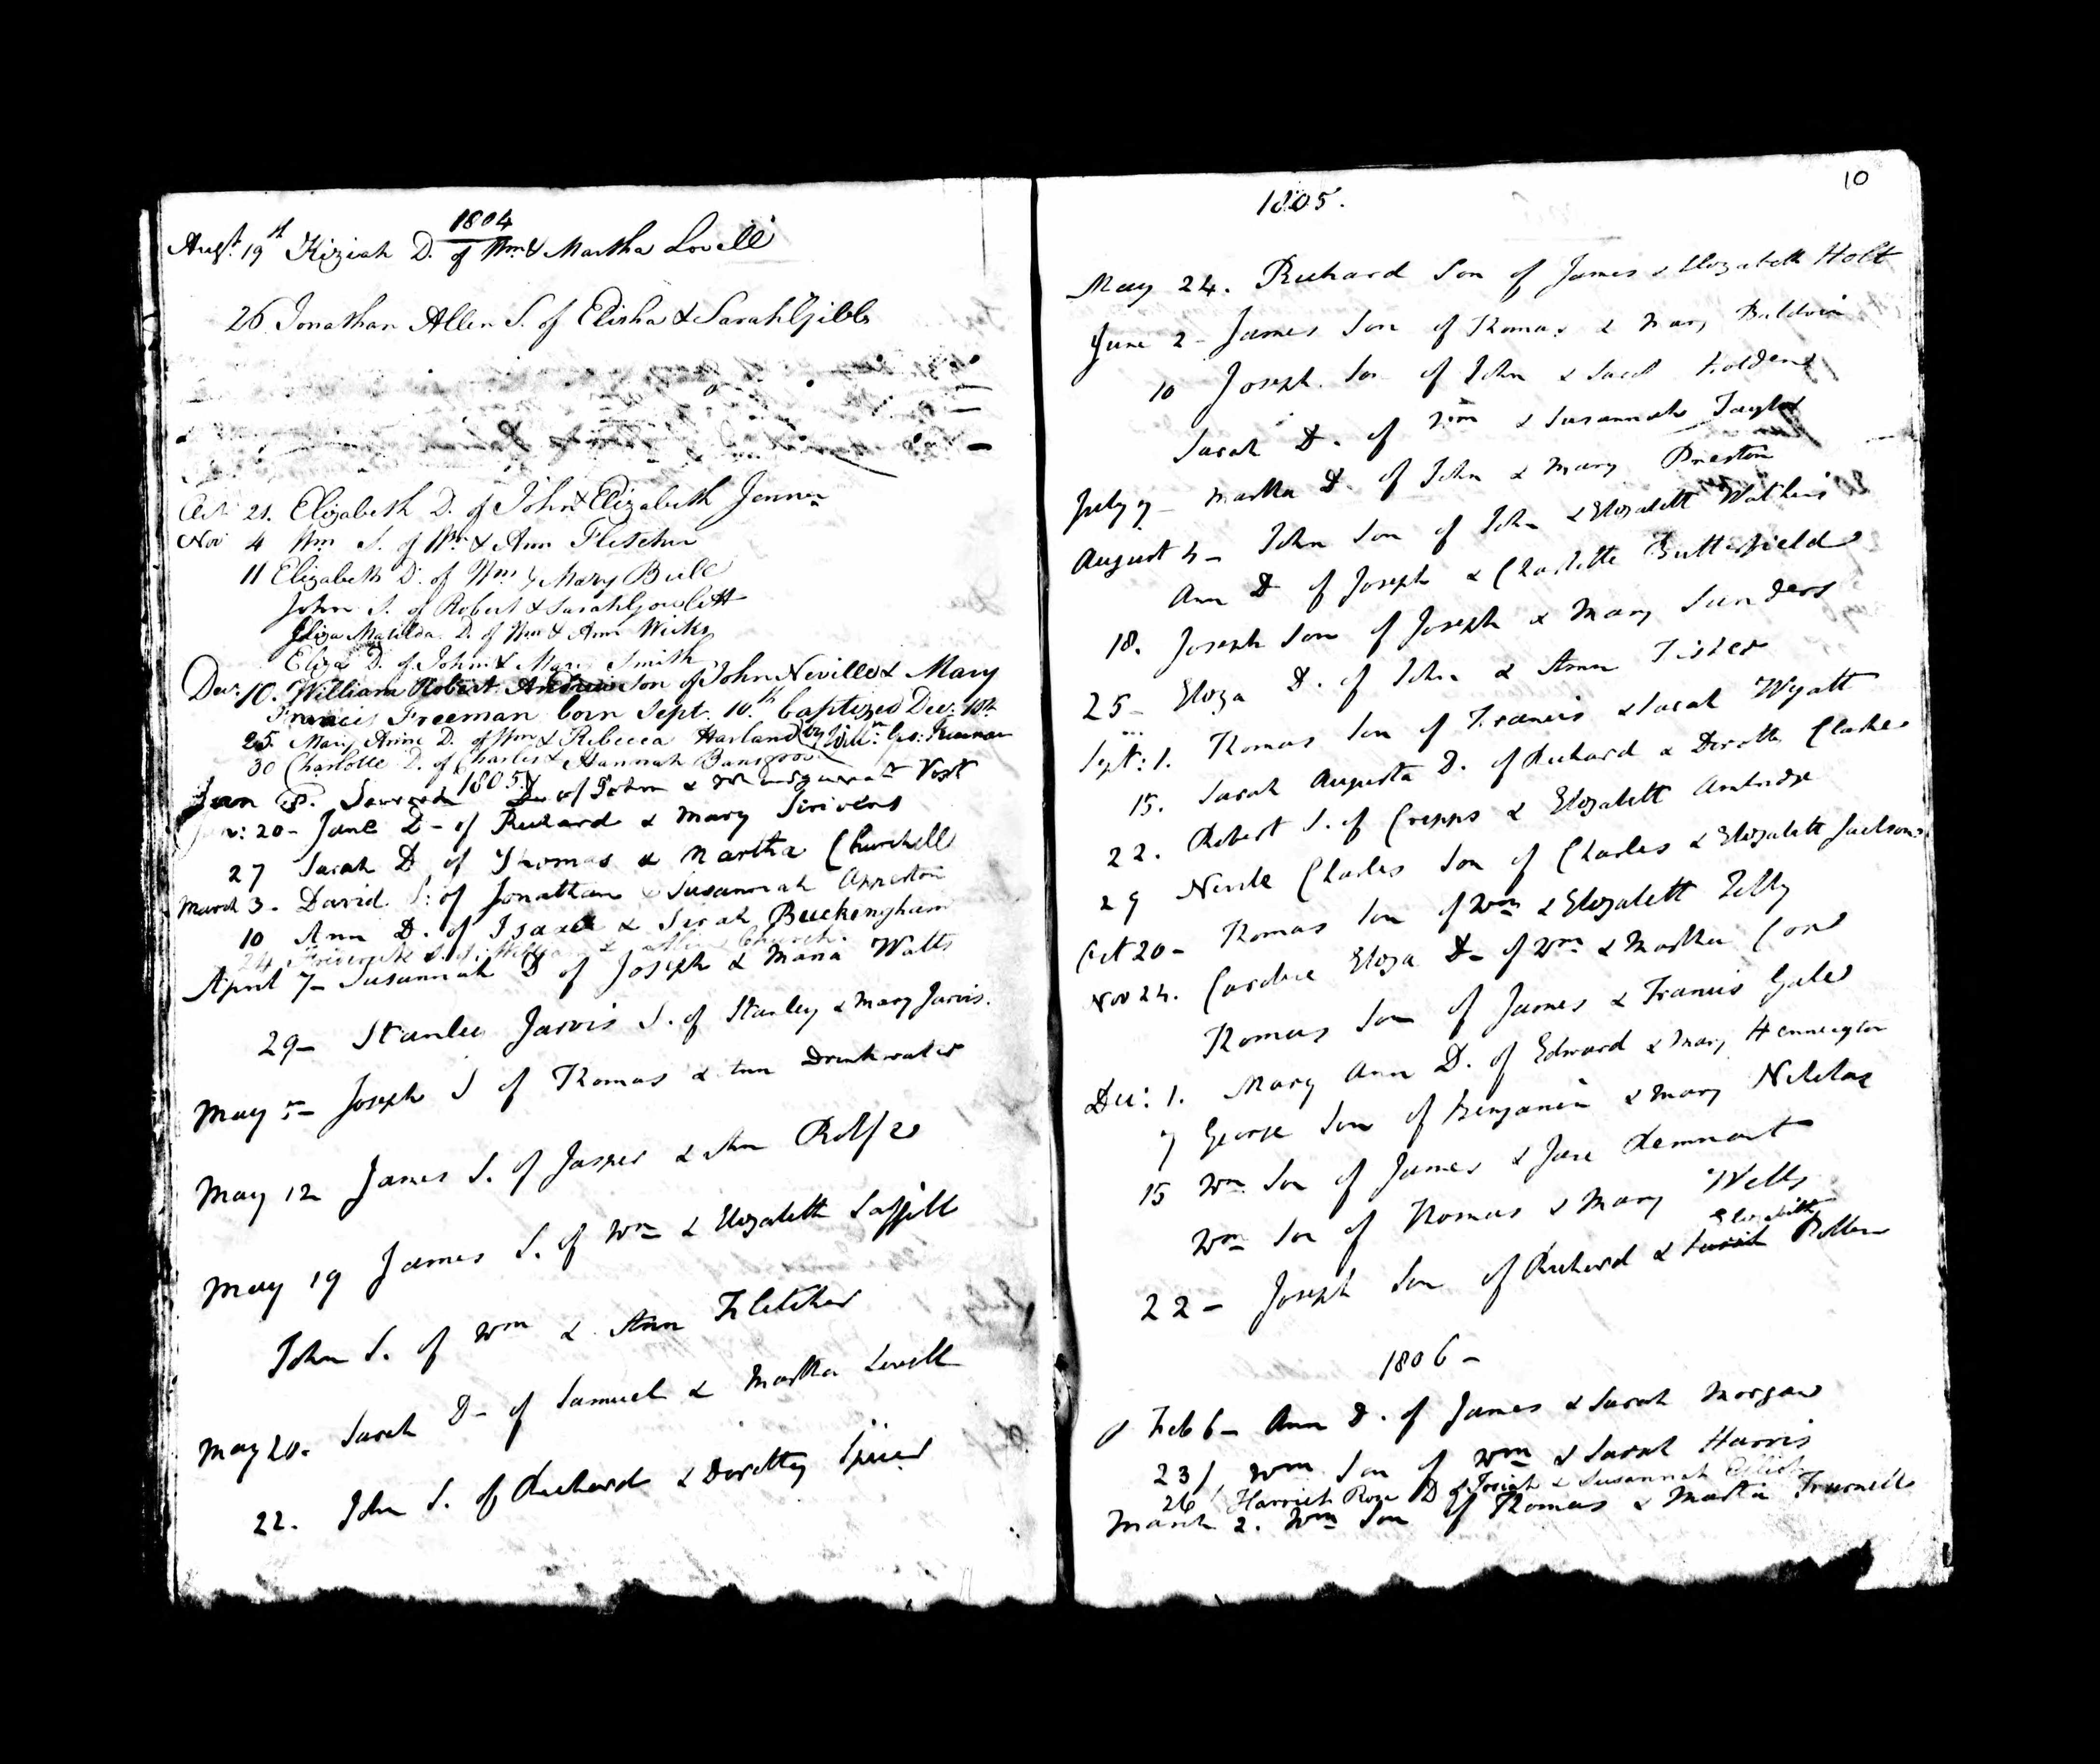 1804
Augst. 19th Kiziah D. of Wm & Martha Lovell
26 Jonathan Allen S. of Elisha & Sarah Gibbs
Oct. 21. Elizabeth D. of John & Elizabeth Jenner
Nov 4 Wm S. of Wm & Ann Fletcher
11 Elizabeth D. of Wm & Mary Bull
John S. of Robert & Sarah Gowlett
Eliza Matilda D. of Wm & Ann Wicks
Eliza D. of John & Mary Smith
Decr. 10. William Robert Andrew Son of John Neville & Mary
Francis Freeman born Sept. 10th baptized Dec. 10th
25. Mary Anne D. of Wm & Rebecca Harland by Geo: Freeman
30 Charlotte D. of Charles & Hannah
1805
Jan D. of John & York
20 - Jane D - of Richard & Mary Scrivens
27 Sarah D of Thomas & Martha Churchill
March 3 - David S: of Jonathan & Susannah Apperton
10 Ann D. of Isaac & Sarah Buckingham
24 Frederick S. of William & Church.
April 7 - Susannah D of Joseph & Maria Watts
29 - Stanley Jarvis S. of Stanley & Mary Jarvis.
May 5 - Joseph S of Thomas & Ann Drinkwater
May 12 James S. of Jasper & Ann Rolfe
May 19 James S. of Wm & Elizabeth
John S. of Wm & Ann Fletcher
May 20. Sarah D - of Samuel & Martha Lovell
22. John S. of Richard & Dorothy Spicer
10
1805.
May 24. Richard Son of James & Elizabeth Holt
June 2 - James Son of Thomas & Mary Baldwin
10 Joseph Son of John & Sarah Holden
Sarah D. of Wm & Susannah Taylor
July 7 - Martha D. of John & Mary Preston
August 4 - John Son of John & Elizabeth Watkins
Ann D of Joseph & Charlotte Butterfield
18. Joseph Son of Joseph & Mary Sunders
25 - Eliza D. of John & Ann Fisher
Sept: 1. Thomas Son of Francis & Sarah Wyatt
15. Sarah Augusta D. of Richard & Dorothy Clarke
22. Robert S. of Cripps & Elizabeth Ambridge
29 Charles Son of Charles & Elizabeth Jackson
Oct 20 - Thomas Son of Wm & Elizabeth Tilly
Nov 24. Caroline Eliza D - of Wm & Martha Cox
Thomas Son of James & Francis Gale
Dec: 1. Mary Ann D. of Edward & Mary Hennington
7 George Son of Benjamin & Mary Nicholas
15 Wm Son of James & Jane Remnant
Wm Son of Thomas & Mary Wells
Elizabeth
22 - Joseph Son of Richard & Sarah
1806 -
Feb 6 - Ann D. of James & Sarah Morgan
23 Wm Son of Wm & Sarah Harris
26 Harriet Rose D of Josiah & Susannah
March 2. Wm Son of Thomas & Martha